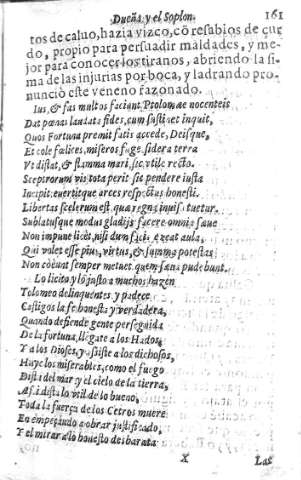 Dueña, y el Soplon. 161
tos de caluo, hazia vizco, cõ resabios de çur
do, propio para persuadir maldades, y me-
jor para conocer los tiranos, abriendo la si-
ma de las injurias por boca, y ladrando pro-
nunciò este veneno razonado.
Ius, & fas multos faciunt Ptolomæe nocenteis
Dat pœnas laudata fides, cum sustinet inquit,
Quos Fortuna premit fatis accede, Deisque,
Et cole fælices, miseros fuge, sidera terra
Vt distat, & flamma mari, sic vtile recto.
Sceptrorum vis tota perit si pendere iusta
Incipit: euertitque arces respectus honesti.
Libertas scelerum est, qua regna inuisa tuetur.
Sublatusque modus gladijs facere omnia sæue
Non impune licet, nisi dum facis: exeat aula,
Qui volet esse pius, virtus, & summa potestas
Non coëunt semper metuet, quem sæua pudebunt.
Lo licito y lo justo a muchos hazen
Tolomeo delinquentes, y padece
Castigos la fe honesta y verdadera,
Quando defiende gente perseguida
De la fortuna, llegate a los Hados,
Y a los Dioses, y assiste a los dichosos,
Huye los miserables, como el fuego
Dista del mar y el cielo de la tierra,
Assi dista lo vtil de lo bueno,
Toda la fuerça de los Cetros muere
En empeçando a obrar justificado,
Y el mirar a lo honesto desbarata
X Las